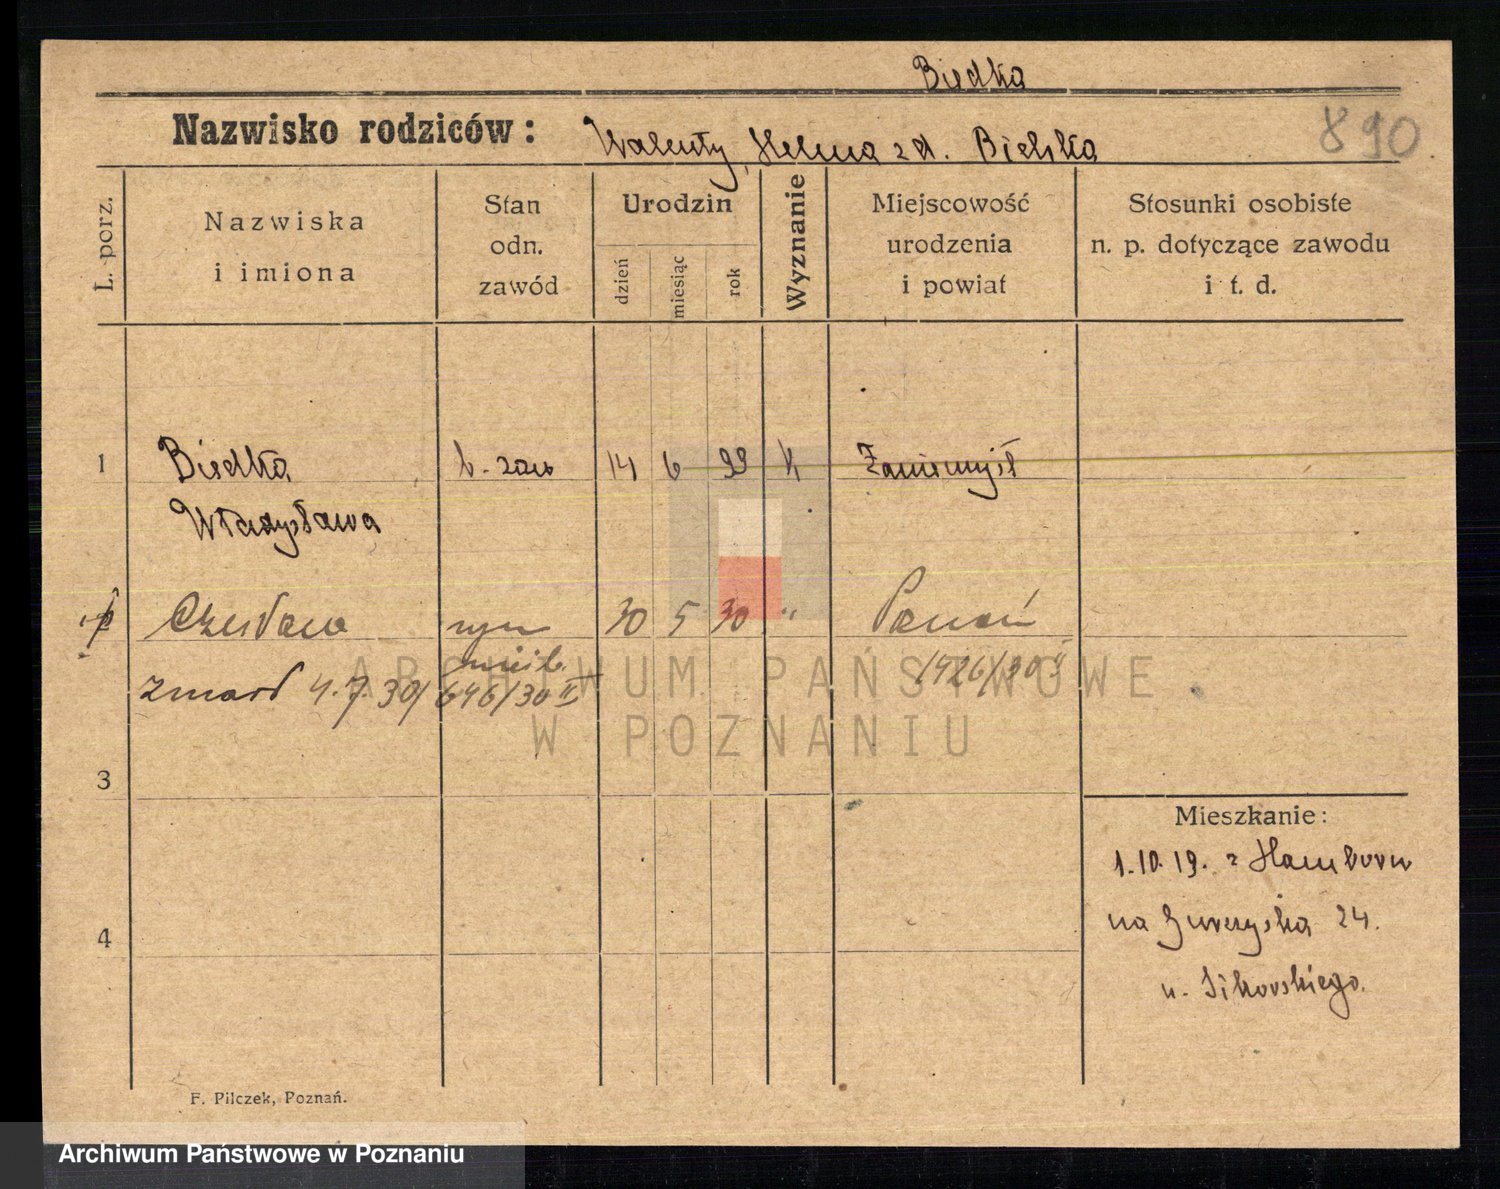 Biedka
Nazwisko rodziców: Walenty, Helena z d. Bielska
890
L. porz.
Nazwiska
i imiona
Stan
odn.
zawód
Urodzin
dzień
miesiąc
rok
Wyznanie
Miejscowość
urodzenia
i powiat
Stosunki osobiste
n. p. dotyczące zawodu
i t. d.
1 Biedka b. zaw 14 6 99 k Zaniemyśl
Władysława
Czesława syn 30 5 30 " Poznań
nieśl. 1426/30 II
zmarł 4.7.30/ 646/30 II
ARCHIWUM PAŃSTWOWE
W POZNANIU
3
Mieszkanie:
1.10.19. z Hamborn
na 24.
u. Sikorskiego.
4
F. Pilczek, Poznań.
Archiwum Państwowe w Poznaniu